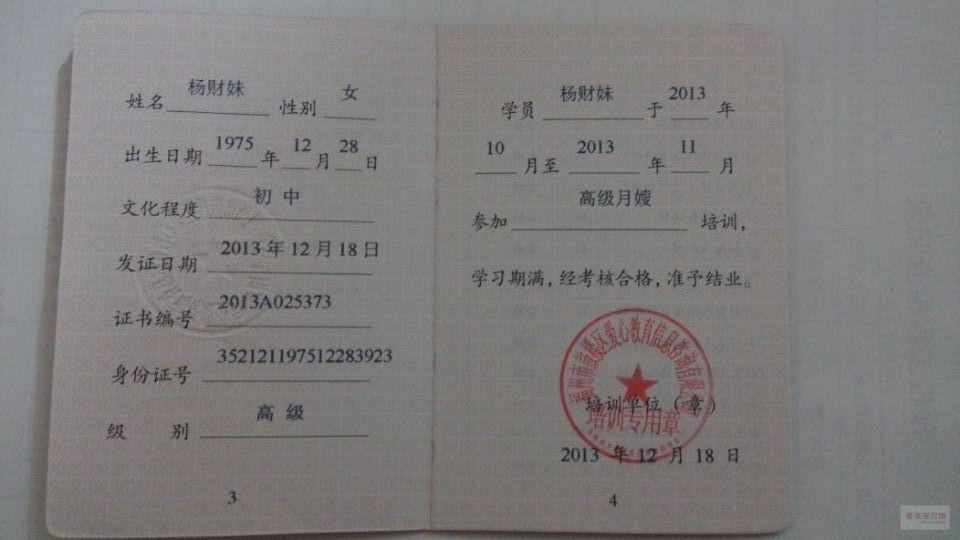 姓名 杨财妹 性别 女
出生日期 1975 年 12 月 28 日
文化程度 初中
发证日期 2013年12月18日
证书编号 2013A025373
身份证号 352121197512283923
级 别 高级
3
学员 杨财妹 于 2013 年
10 月至 2013 年 11 月
参加 高级月嫂 培训,
学习期满,经考核合格,准予结业。
福州市鼓楼区爱心教育信息咨询有限公司
培训单位(章)
培训专用章
2013 年 12 月 18 日
4